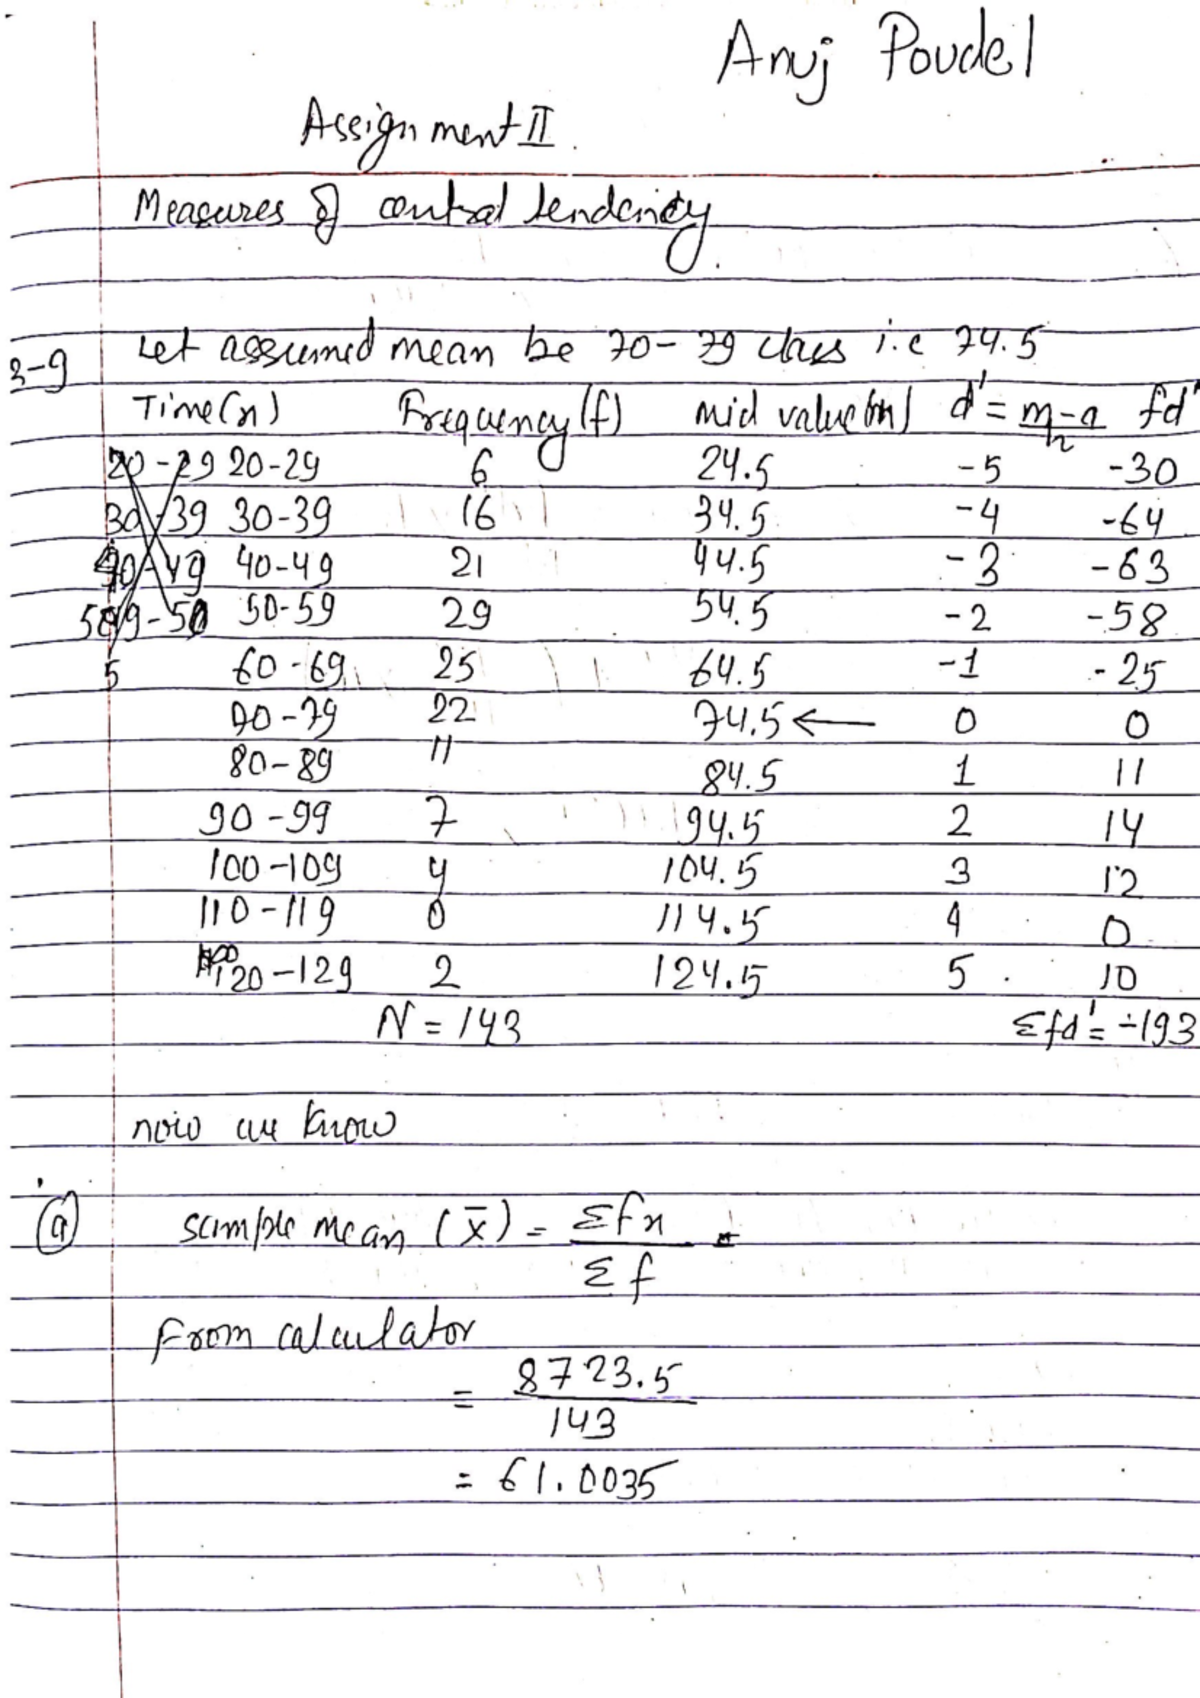 Anuj Poudel
Assignment II.
Measures of central tendency.
3-9 Let assumed mean be 70-79 class i.e 74.5
Time(x) Frequency(f) mid value(m) d' = m-a/h fd'
20-29 20-29 6 24.5 -5 -30
30-39 30-39 16 34.5 -4 -64
40-49 40-49 21 44.5 -3 -63
50-59 29 54.5 -2 -58
5 60-69 25 64.5 -1 -25
70-79 22 74.5 ← 0 0
80-89 11 84.5 1 11
90-99 7 94.5 2 14
100-109 4 104.5 3 12
110-119 0 114.5 4 0
120-129 2 124.5 5 10
N = 143 Σfd' = -193
now we know
(a) sample mean (x̄) = Σfx / Σf =
From calculator
= 8723.5 / 143
= 61.0035